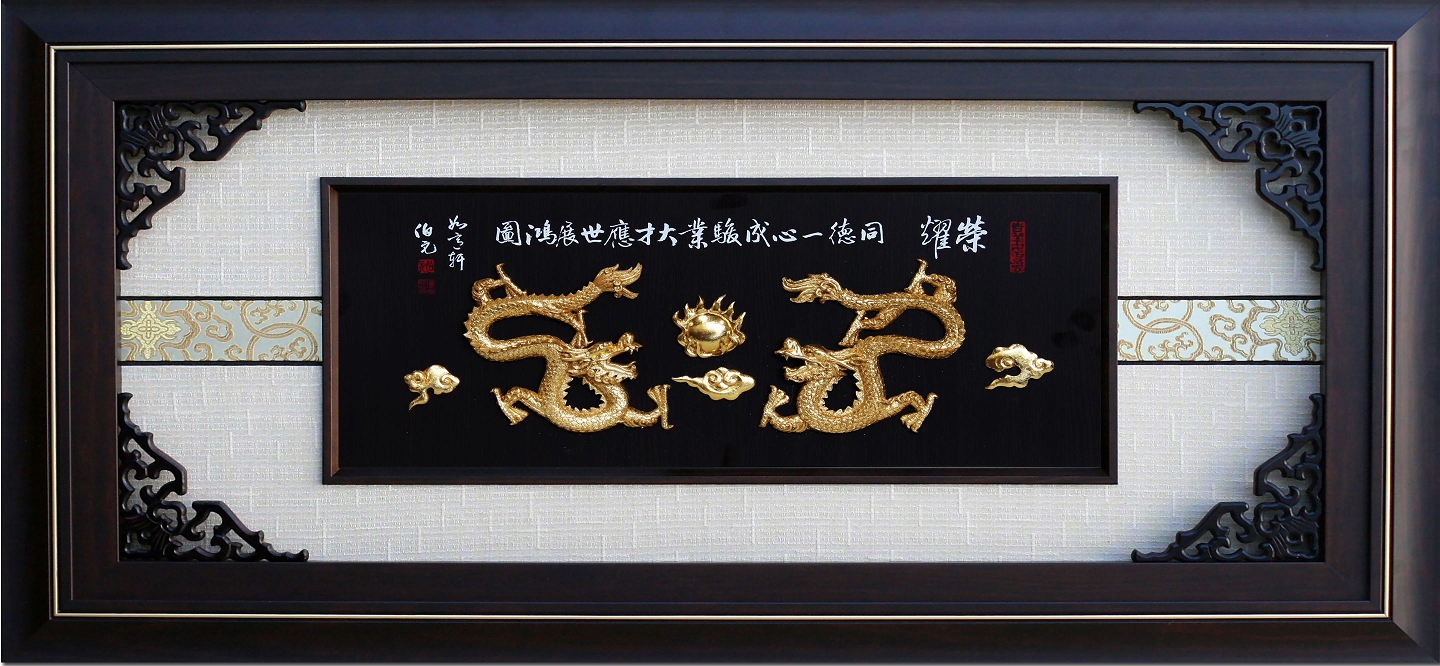 榮耀
同德一心成駿業大才應世展鴻圖
如意軒
伯元